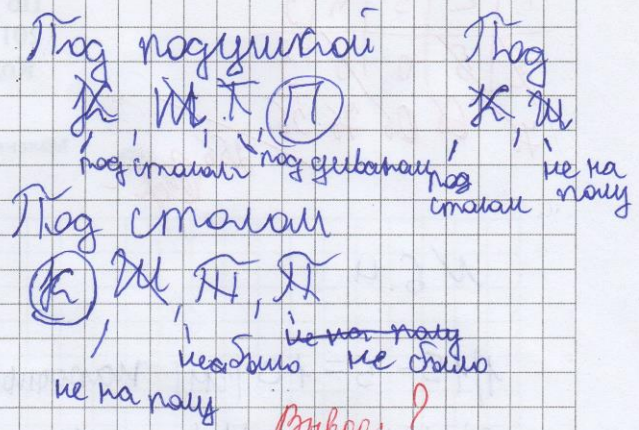 Под подушкой Под
К, Ж, Т, П К, Ж
под столом под диваном под столом не на полу
Под столом
К, Ж, Т, П
не на полу не было не на полу не было
Вывод?